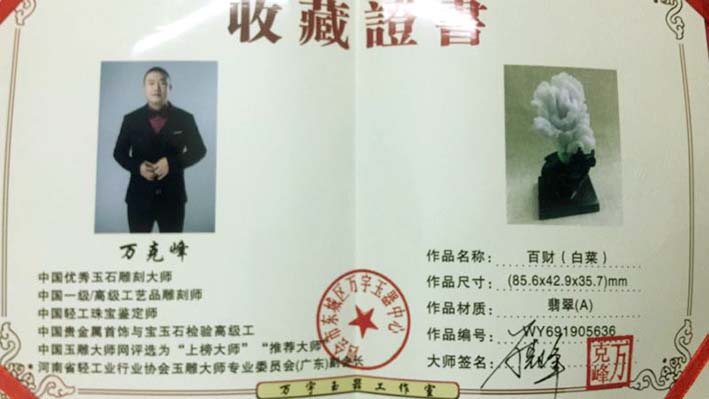 收藏證書
万克峰
中国优秀玉石雕刻大师
中国一级/高级工艺品雕刻师
中国轻工珠宝鉴定师
中国贵金属首饰与宝玉石检验高级工
中国玉雕大师网评选为“上榜大师”“推荐大师”
河南省轻工业行业协会玉雕大师专业委员会(广东)副会长
作品名称： 百财（白菜）
作品尺寸： (85.6x42.9x35.7)mm
作品材质： 翡翠(A)
作品编号： WY691905636
大师签名：
万克峰
东城区万字玉器中心
万字玉器工作室